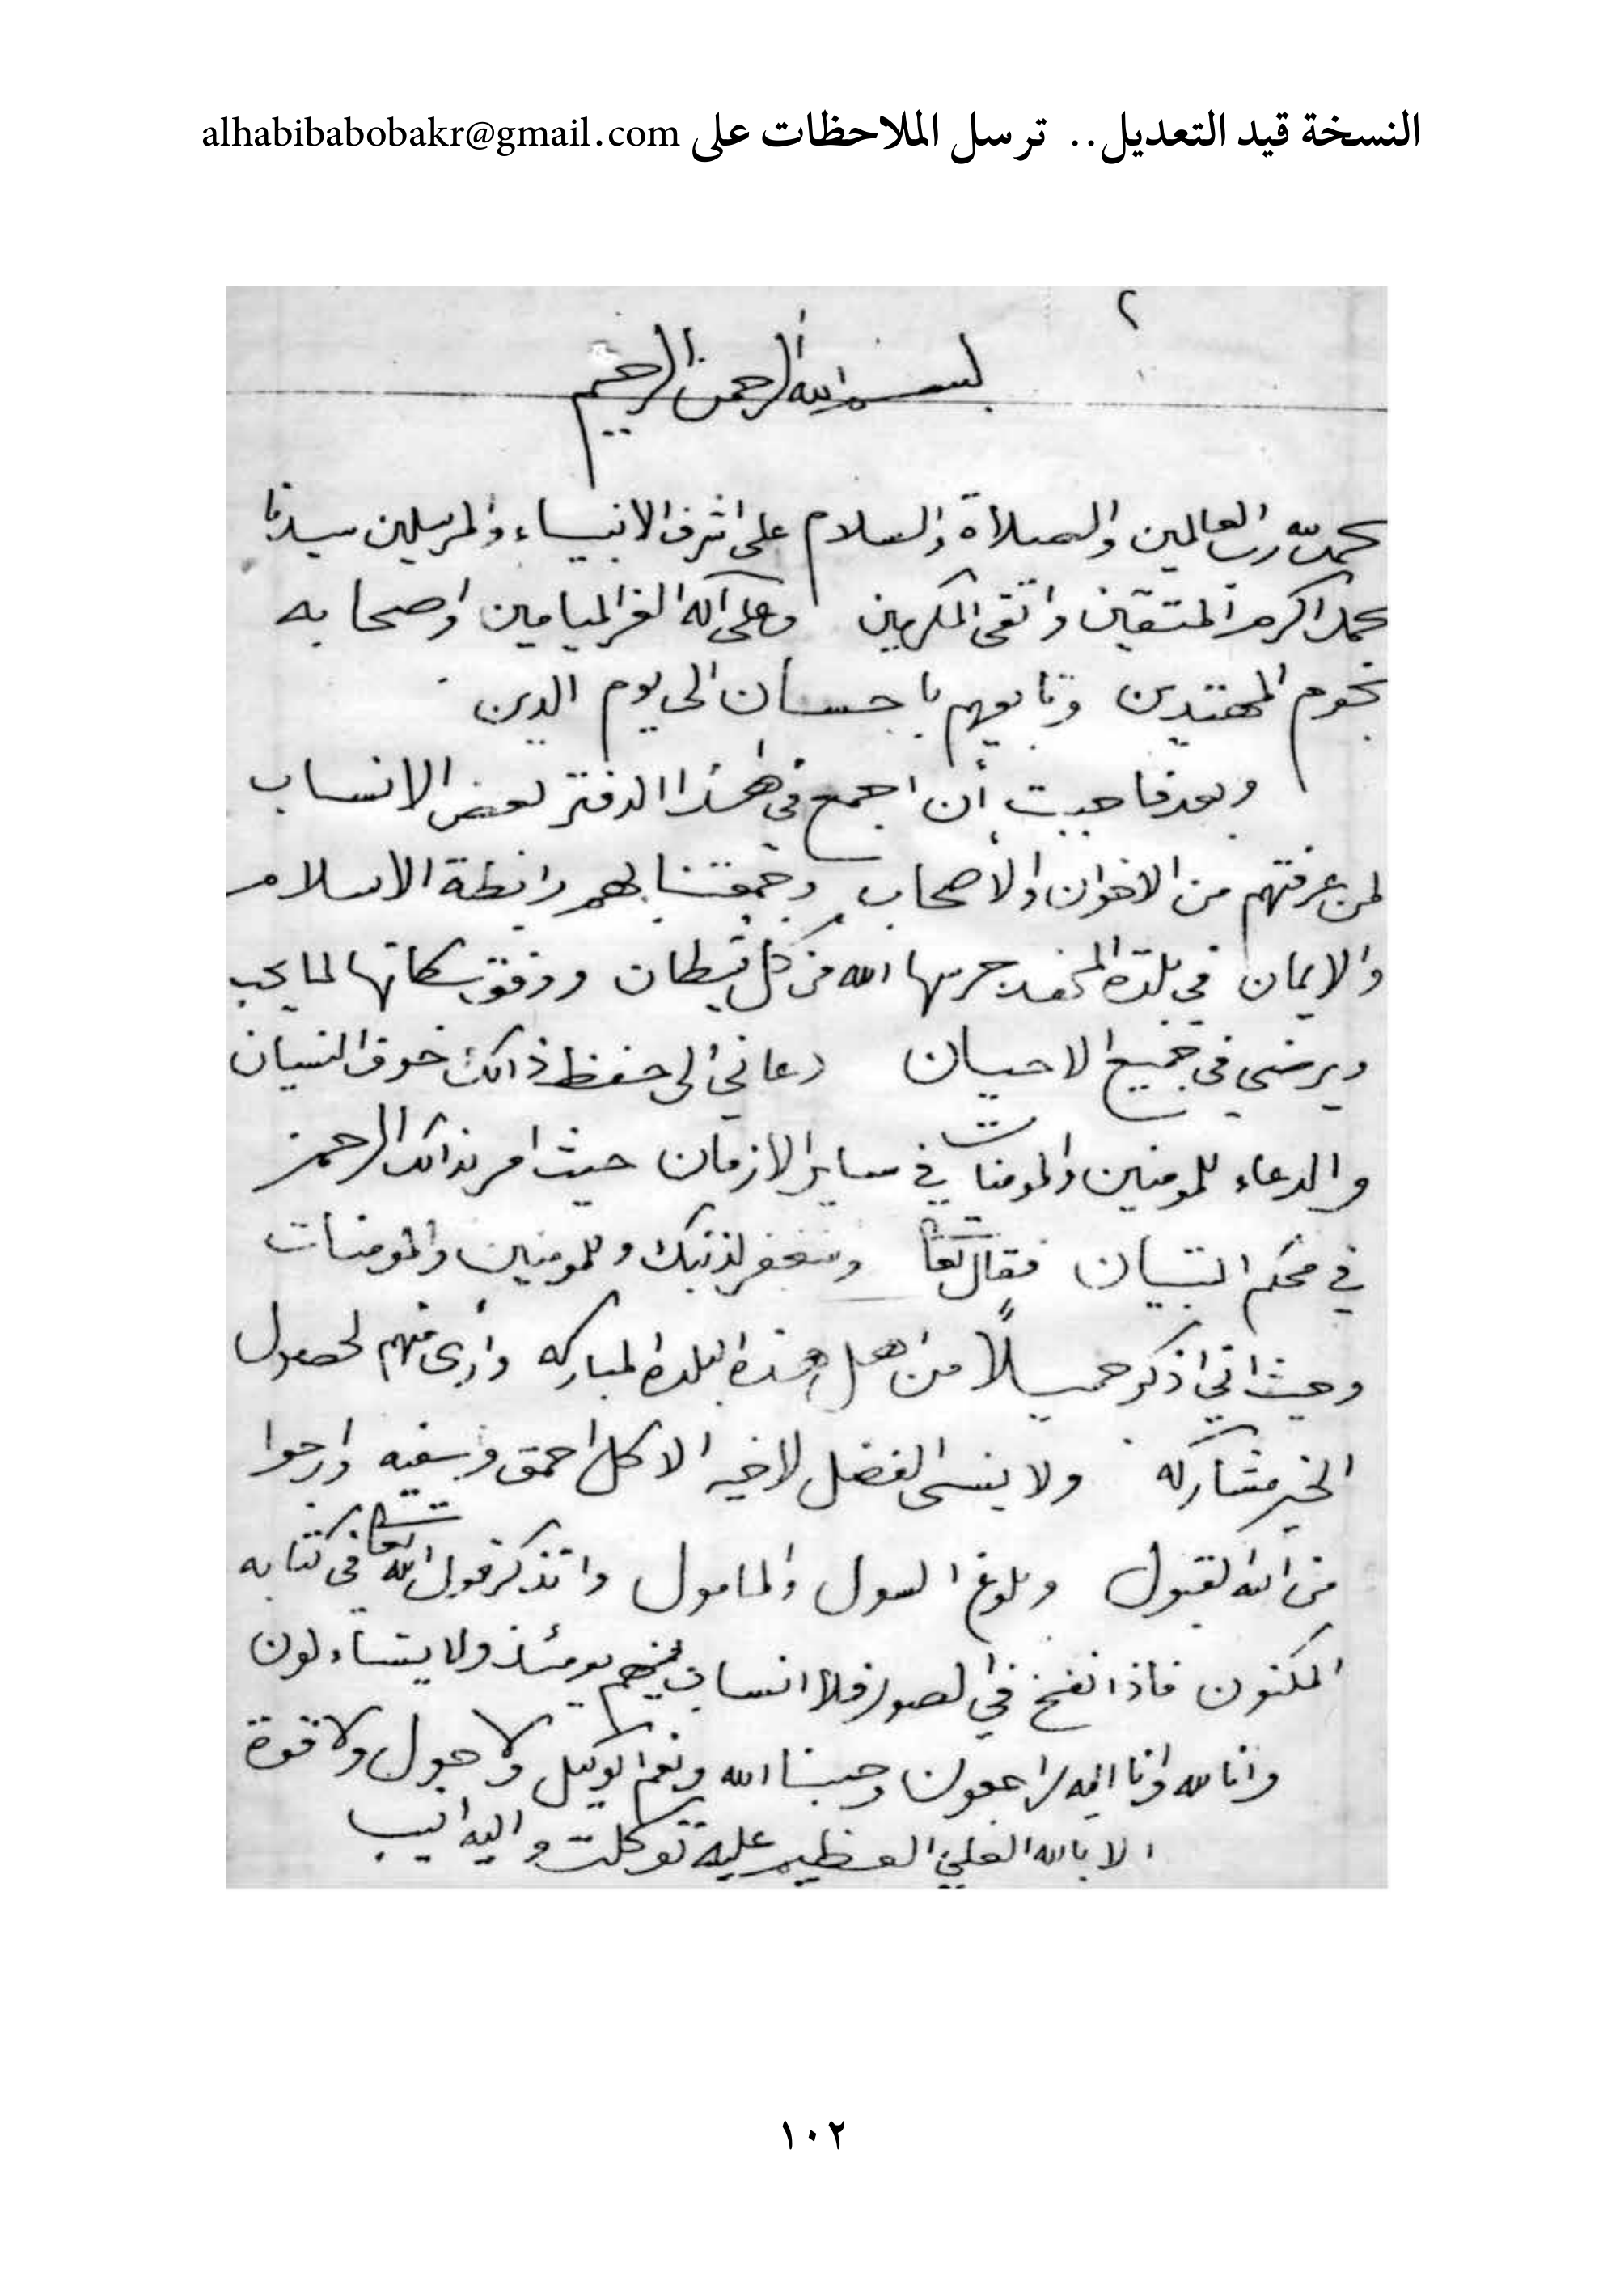 النسخة قيد التعديل.. ترسل الملاحظات على alhabibabobakr@gmail.com
٢
بسم الله الرحمن الرحيم
حمد لله رب العالمين والصلاة والسلام على اشرف الانبياء والمرسلين سيدنا
محمد اكرم المتقين واتقى المكرمين وعلى آله الغر الميامين واصحابه
نجوم المهتدين وتابعيهم باحسان الى يوم الدين
وبعد فاحببت أن اجمع في هذا الدفتر بعض الانساب
لمن عرفتهم من الاخوان والأصحاب وجمعتنا بهم رابطة الاسلام
والايمان في بلدة حرسها الله من كل شيطان ووفق سكانها لما يحب
ويرضى في جميع الاحيان دعاني الى حفظ ذالك خوف النسيان
والدعاء للمومنين والمومنات في ساير الازمان حيث امر بذالك الرحمن
في محكم التبيان فقال تعا واستغفر لذنبك وللمومنين والمومنات
وحيث اني اذكر جميلاً من اهل هذه البلدة المباركه وأرى منهم لحصول
الخير مشاركه ولا ينسى الفضل لاخيه الا كل احمق وسفيه وارجوا
من الله القبول وبلوغ السول والمامول واتذكر قول الله تعا في كتابه
المكنون فاذا نفخ في الصور فلا انساب بينهم يومئذ ولا يتساءلون
وانا لله وانا اليه راجعون وحسبنا الله ونعم الوكيل ولا حول ولا قوة
الا بالله العلي العظيم عليه توكلت واليه انيب
١٠٢